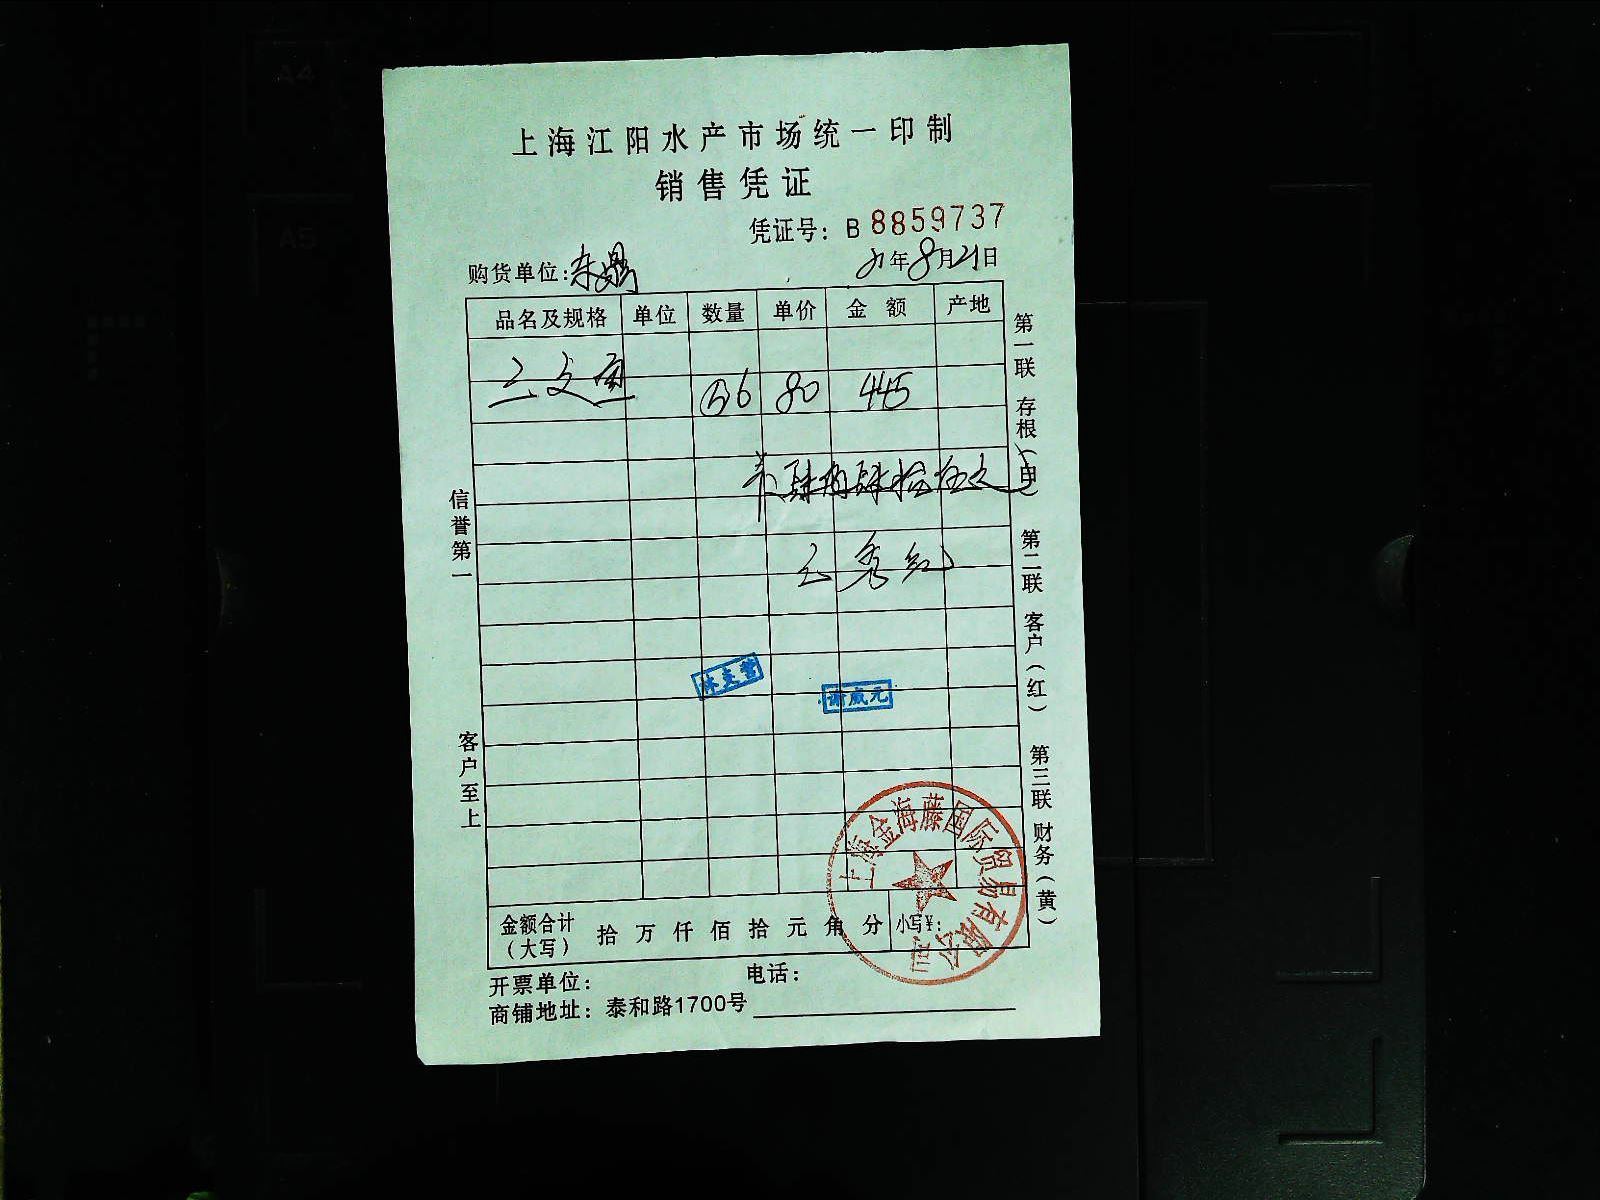 上海江阳水产市场统一印制
销售凭证
凭证号：B 8859737
购货单位：东鼎 年8月21日
品名及规格 单位 数量 单价 金额 产地
三文鱼 80 445
肆佰肆拾伍元
秀红
谢威元
信誉第一
客户至上
第一联 存根（白）
第二联 客户（红）
第三联 财务（黄）
上海金海藤国际贸易有限公司
金额合计（大写） 拾 万 仟 佰 拾 元 角 分 小写¥：
开票单位： 电话：
商铺地址：泰和路1700号
A4
A5